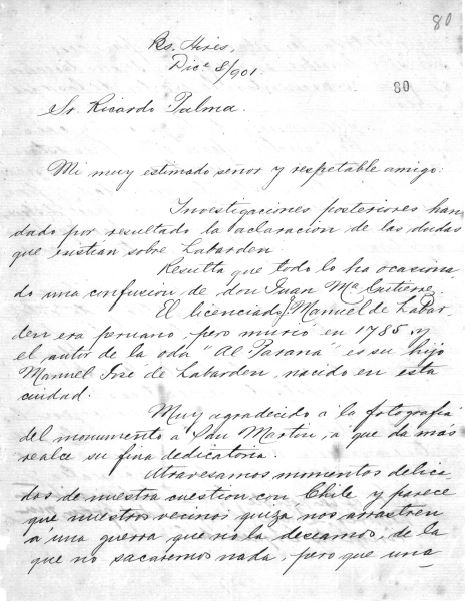 80
Bs. Aires,
Dice 8/901.
80
Sr. Ricardo Palma.
Mi muy estimado señor y respetable amigo:
Investigaciones posteriores han
dado por resultado la aclaracion de las dudas
que existian sobre Labarden.
Resulta que todo lo ha ocasiona
do una confusion de don Juan Ma. Gutierre.
El licenciado Manuel de Labar-
den era peruano, pero murió en 1785, y
el autor de la oda "Al Paraná" es su hijo
Manuel José de Labarden, nacido en esta
ciudad.
Muy agradecido á la fotografia
del monumento á San Martin, a que da más
realce su fina dedicatoria.
Atravesamos momentos delica
dos de nuestra cuestion con Chile y parece
que nuestros vecinos quizá nos arrastren
a una guerra que no la deseamos, de la
que no sacaremos nada, pero que una